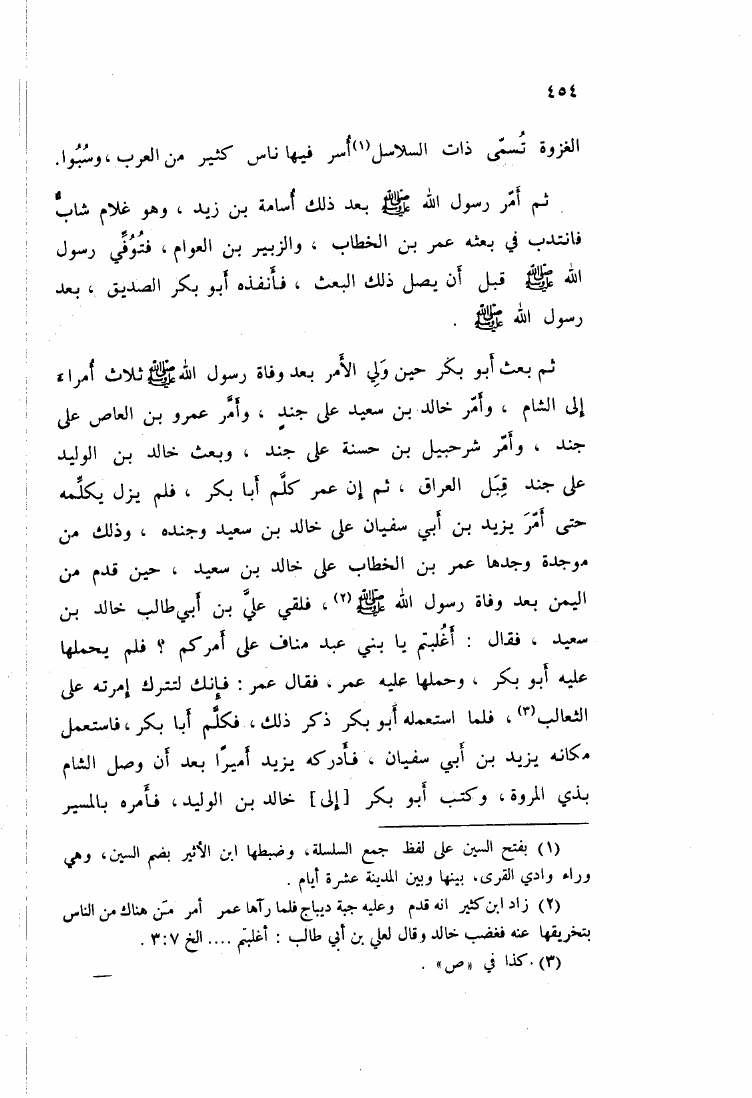 ٤٥٤
الغزوة تُسمّى ذات السلاسل(١) أُسر فيها ناس كثير من العرب ، وسُبُوا.
ثم أَمّر رسول الله ﷺ بعد ذلك أُسامة بن زيد ، وهو غلام شابٌّ
فانتدب في بعثه عمر بن الخطاب ، والزبير بن العوام ، فتُوُفِّي رسول
الله ﷺ قبل أن يصل ذلك البعث ، فأَنفذه أبو بكر الصديق ، بعد
رسول الله ﷺ .
ثم بعث أبو بكر حين وَلِي الأَمر بعد وفاة رسول الله ﷺ ثلاث أُمراء
إلى الشام ، وأَمّر خالد بن سعيد على جندٍ ، وأَمَّر عمرو بن العاص على
جند ، وأَمّر شرحبيل بن حسنة على جند ، وبعث خالد بن الوليد
على جند قِبَل العراق ، ثم إن عمر كلَّم أبا بكر ، فلم يزل يكلِّمه
حتى أَمّرَ يزيد بن أبي سفيان على خالد بن سعيد وجنده ، وذلك من
موجدة وجدها عمر بن الخطاب على خالد بن سعيد ، حين قدم من
اليمن بعد وفاة رسول الله ﷺ (٢) ، فلقي عليَّ بن أبي طالب خالد بن
سعيد ، فقال : أَغُلبتم يا بني عبد مناف على أمركم ؟ فلم يحملها
عليه أبو بكر ، وحملها عليه عمر ، فقال عمر : فإنك لتترك إمرته على
الثعالب(٣) ، فلما استعمله أبو بكر ذكر ذلك ، فكلَّم أبا بكر ، فاستعمل
مكانه يزيد بن أبي سفيان ، فأَدركه يزيد أميرًا بعد أن وصل الشام
بذي المروة ، وكتب أبو بكر [إلى] خالد بن الوليد ، فأَمره بالمسير
(١) بفتح السين على لفظ جمع السلسلة، وضبطها ابن الأثير بضم السين، وهي
وراء وادي القرى، بينها وبين المدينة عشرة أيام .
(٢) زاد ابن كثير انه قدم وعليه جبة ديباج فلما رآها عمر أمر مَن هناك من الناس
بتخريقها عنه فغضب خالد وقال لعلي بن أبي طالب : أغلبتم .... الخ ٧:٣ .
(٣) كذا في «ص» .